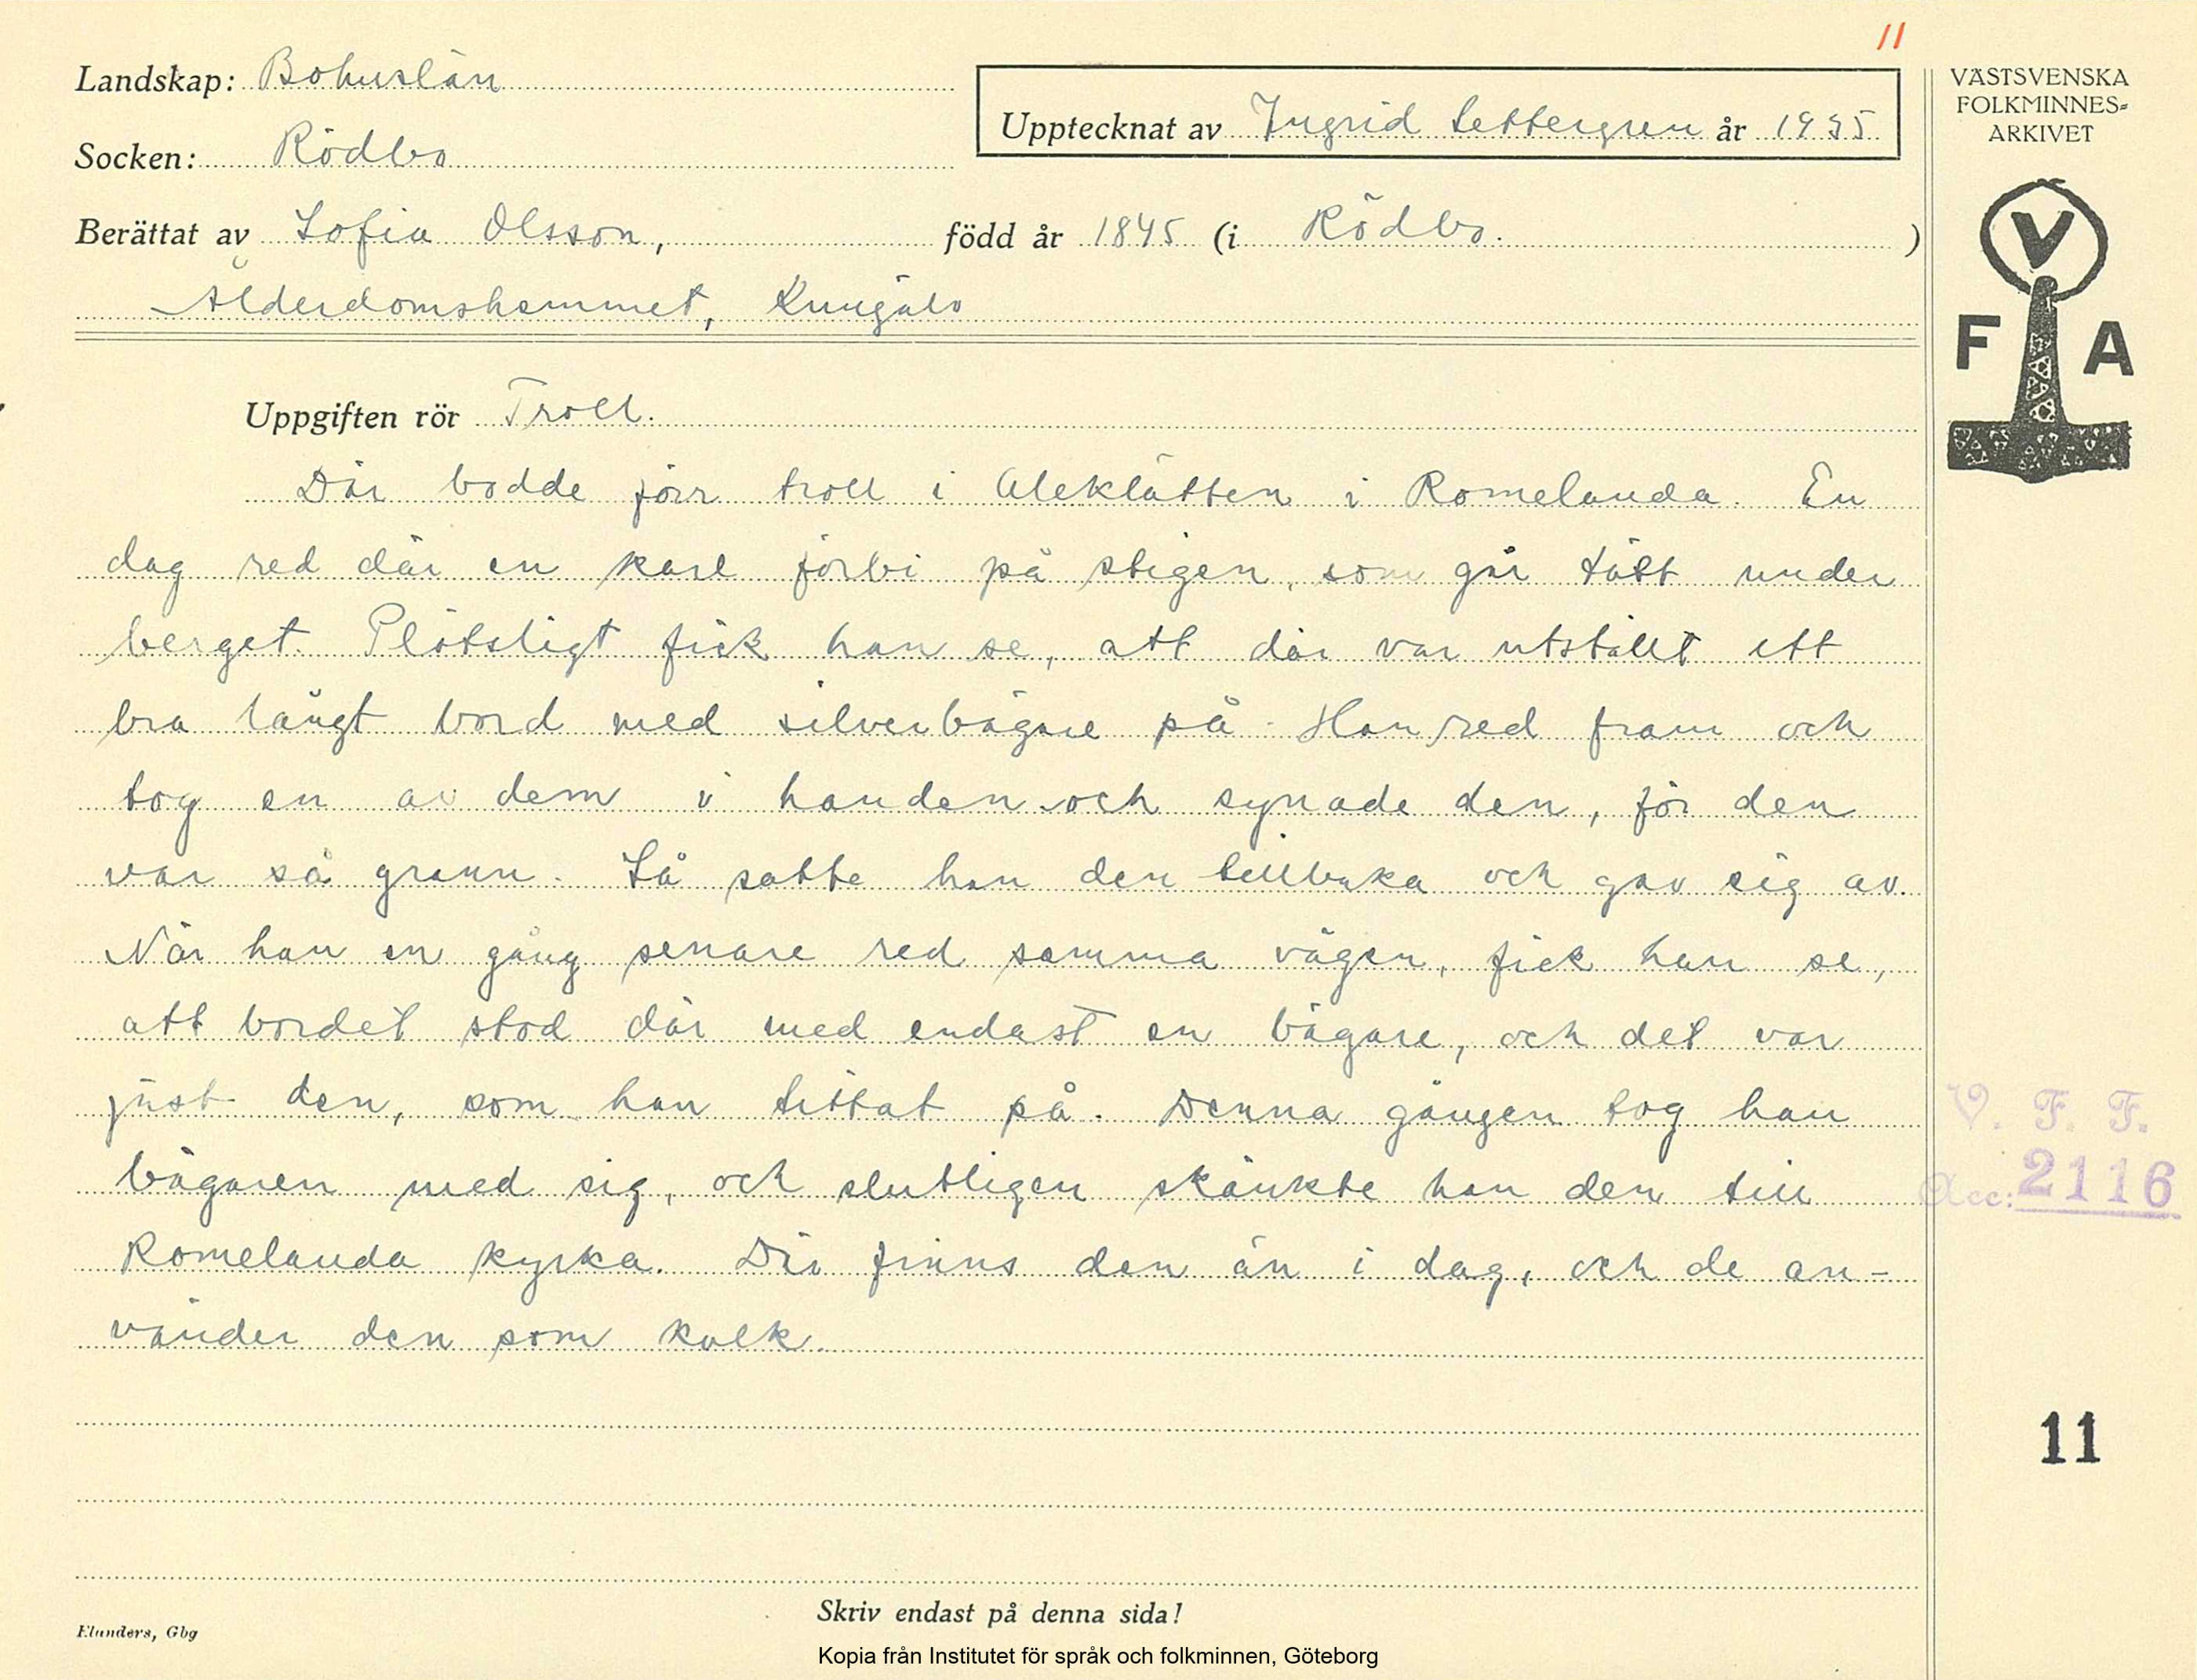 11
Landskap: Bohuslän
Socken: Rödbo
Upptecknat av Ingrid Settergren år 1935
VÄSTSVENSKA
FOLKMINNES-
ARKIVET
Berättat av Sofia Olsson, född år 1845 (i Rödbo. )
Ålderdomshemmet, Kungälv
V
F A
Uppgiften rör Troll.
Där bodde förr troll i Aleklätten i Romelanda. En
dag red där en karl förbi på stigen, som går tätt under
berget. Plötsligt fick han se, att där var utställt ett
bra långt bord med silverbägare på. Han red fram och
tog en av dem i handen och synade den, för den
var så grann. Så satte han den tillbaka och gav sig av.
När han en gång senare red samma vägen, fick han se,
att bordet stod där med endast en bägare, och det var
just den, som han tittat på. Denna gången tog han
bägaren med sig, och slutligen skänkte han den till
Romelanda kyrka. Där finns den än i dag, och de an-
vänder den som kalk.
V. F. F.
Acc: 2116
11
Skriv endast på denna sida!
Elanders, Gbg
Kopia från Institutet för språk och folkminnen, Göteborg